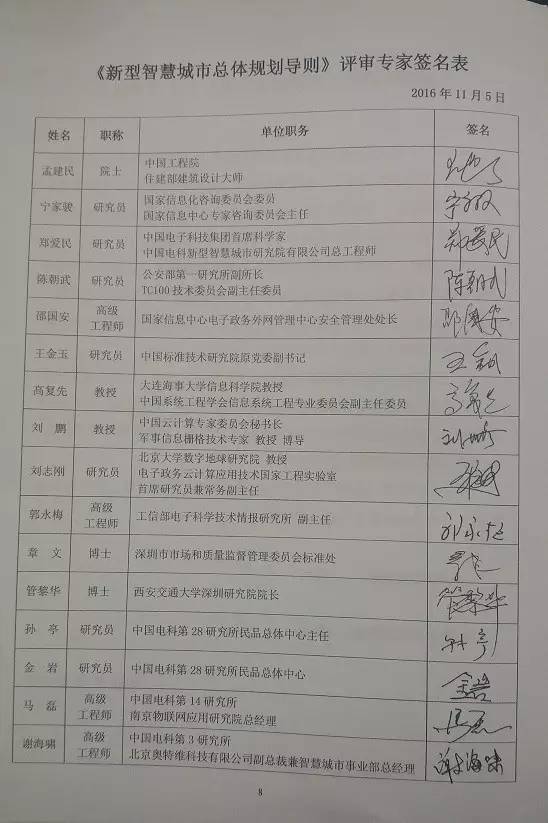 《新型智慧城市总体规划导则》评审专家签名表
2016 年 11 月 5 日
姓名 职称 单位职务 签名
孟建民 院士 中国工程院
住建部建筑设计大师
宁家骏 研究员 国家信息化咨询委员会委员 宁家骏
国家信息中心专家咨询委员会主任
郑爱民 研究员 中国电子科技集团首席科学家 郑爱民
中国电科新型智慧城市研究院有限公司总工程师
陈朝武 研究员 公安部第一研究所副所长 陈朝武
TC100 技术委员会副主任委员
邵国安 高级
工程师 国家信息中心电子政务外网管理中心安全管理处处长 邵国安
王金玉 研究员 中国标准技术研究院原党委副书记
高复先 教授 大连海事大学信息科学院教授 高复先
中国系统工程学会信息系统工程专业委员会副主任委员
刘 鹏 教授 中国云计算专家委员会秘书长 刘鹏
军事信息栅格技术专家 教授 博导
刘志刚 研究员 北京大学数字地球研究院 教授
电子政务云计算应用技术国家工程实验室
首席研究员兼常务副主任
郭永梅 高级
工程师 工信部电子科学技术情报研究所 副主任
章 文 博士 深圳市市场和质量监督管理委员会标准处
管黎华 博士 西安交通大学深圳研究院院长 管黎华
孙 亭 研究员 中国电科第 28 研究所民品总体中心主任 孙亭
金 岩 研究员 中国电科第 28 研究所民品总体中心 金岩
马 磊 高级
工程师 中国电科第 14 研究所 马磊
南京物联网应用研究院总经理
谢海啸 高级
工程师 中国电科第 3 研究所 谢海啸
北京奥特维科技有限公司副总裁兼智慧城市事业部总经理
8